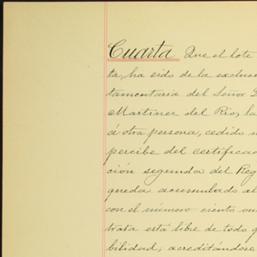 Cuarta Que el lote
ta, ha sido de la exclusi
tamentaria del Señor D
Martinez del Rio, la
á otra persona, cedido n
percibe del certificad
ción segunda del Reg
queda acumulado al
con el número ciento un
trata está libre de todo g
bilidad, acreditándose